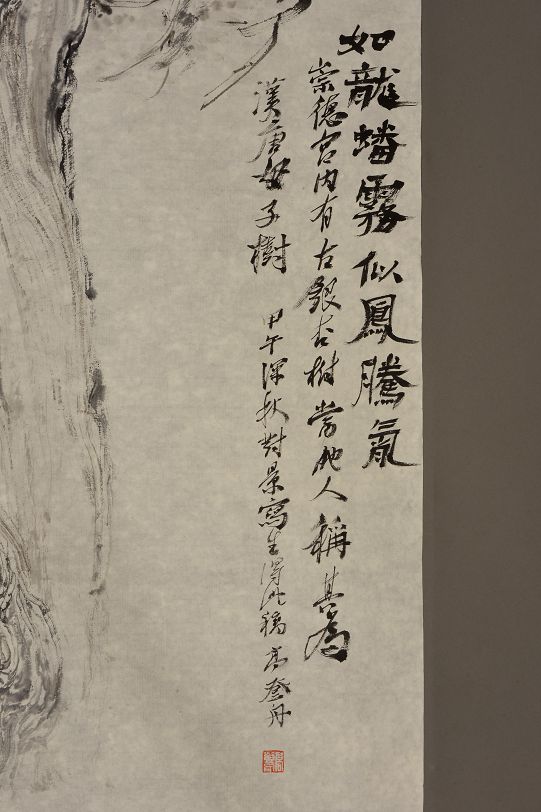 如龍蟠霧似鳳騰氣
崇德宮內有古銀杏樹當地人稱其為
漢唐母子樹 甲午深秋對景寫生得此稿 高登舟